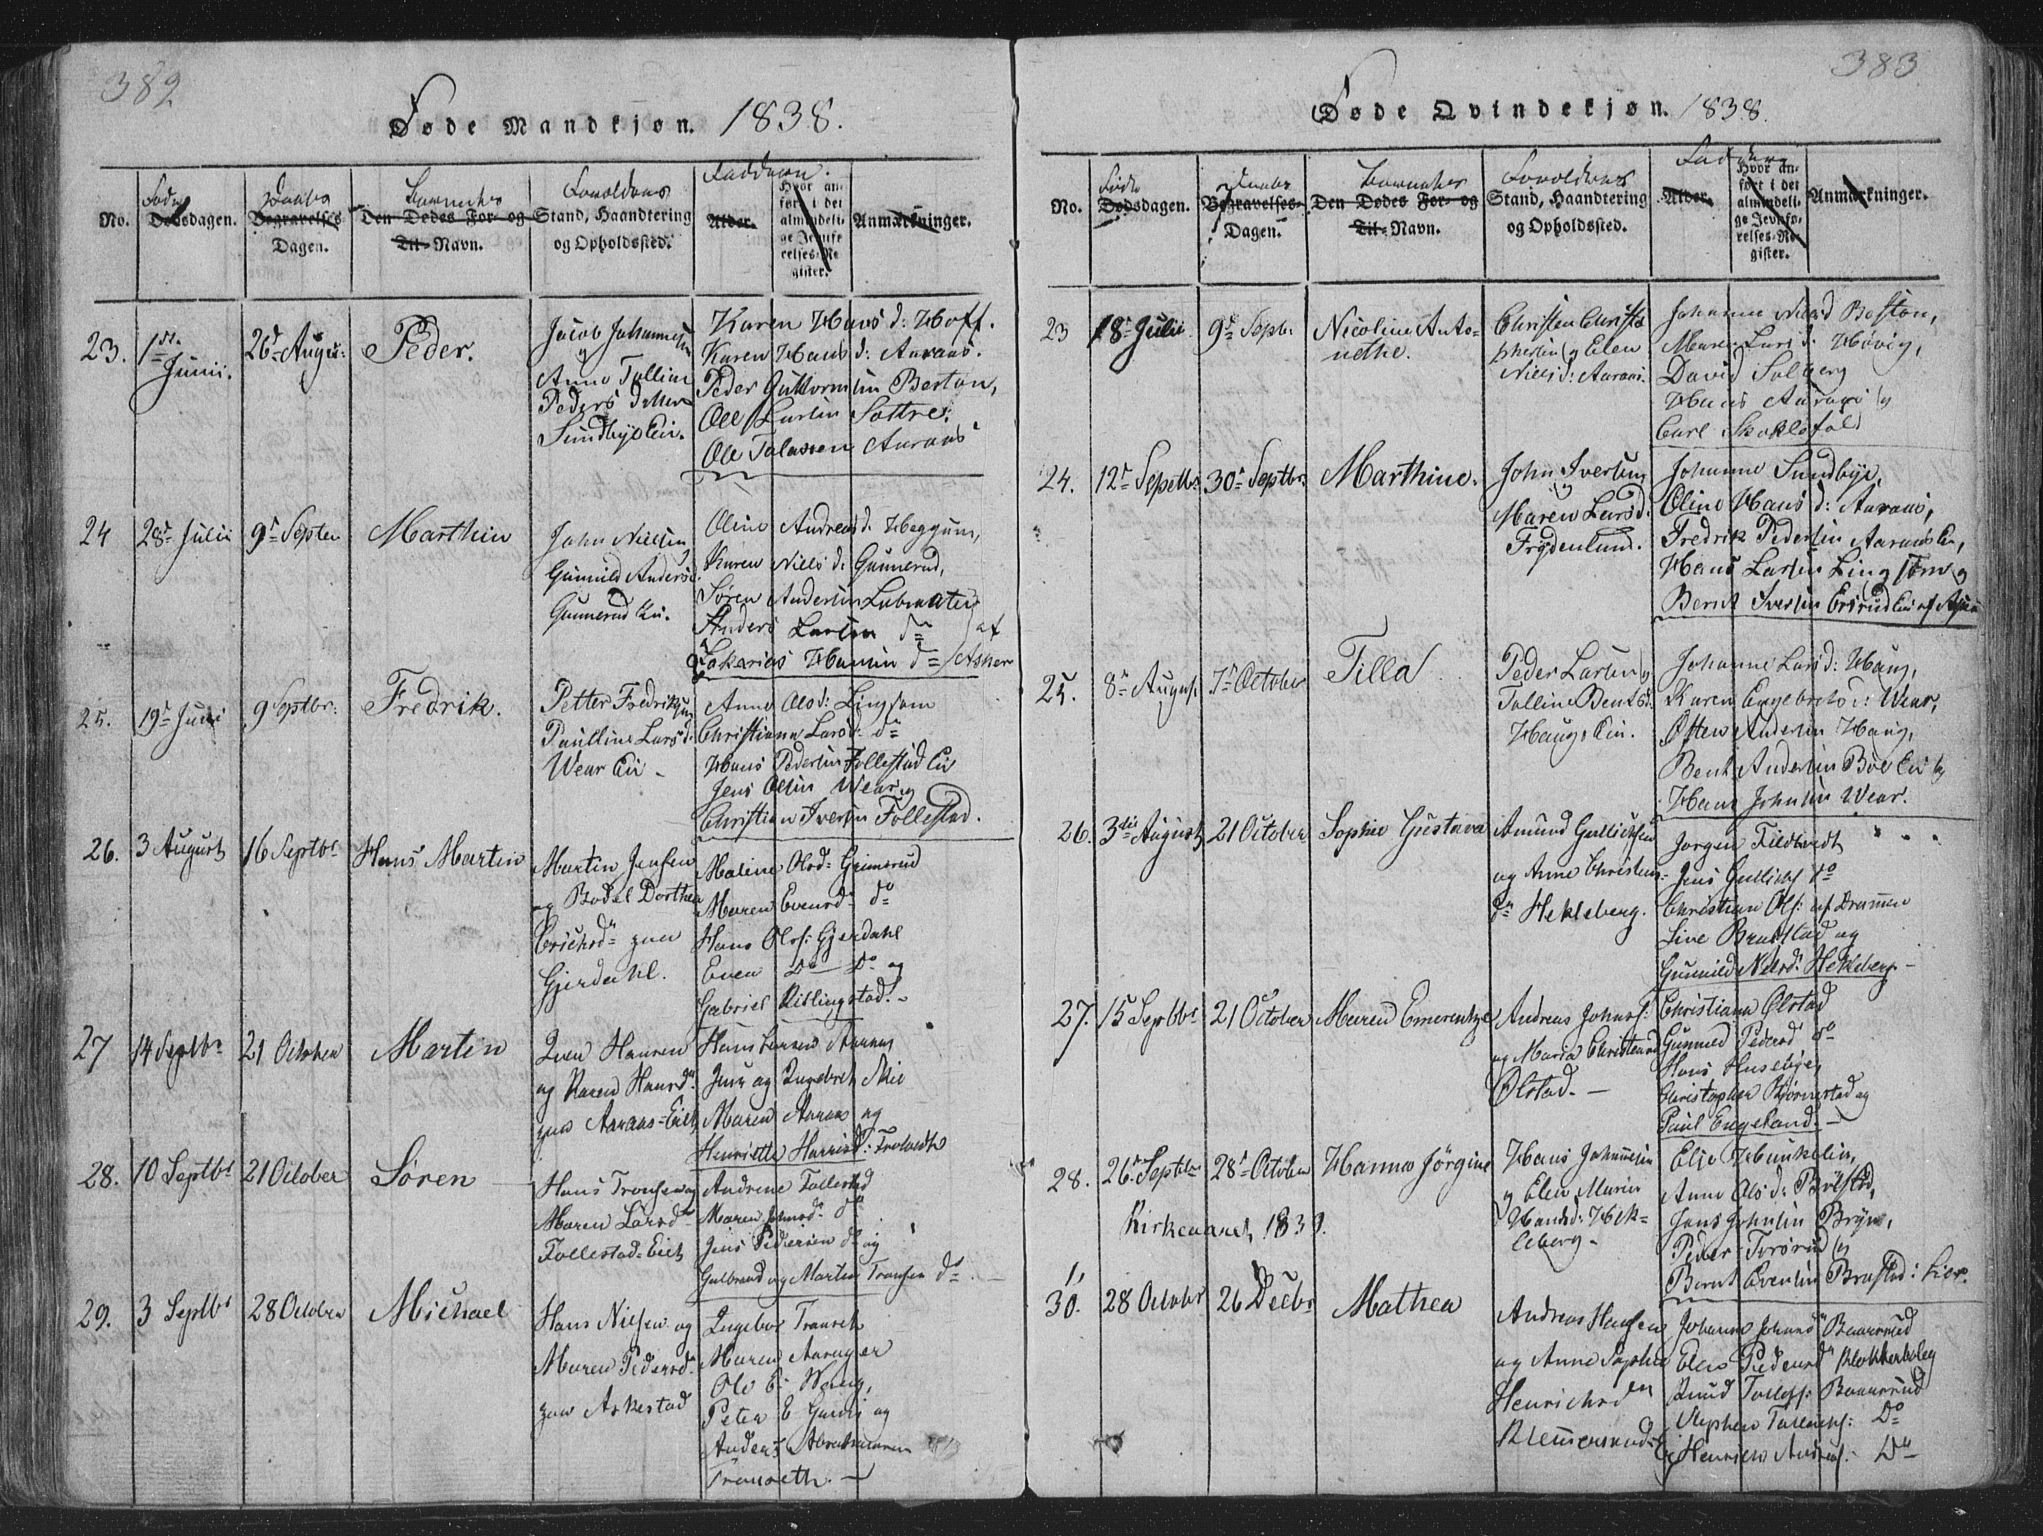 382
Føde Mandkjøn. 1838.
No.
Føde
Dødsdagen.
Daabs
Begravelses
Dagen.
Barnets
Den Dødes For- og
Til-Navn.
Forældrenes
Stand, Haandtering
og Opholdssted.
Faddere.
Alder.
Hvor an-
ført i det
almindeli-
ge Jevnfø-
relses-Re-
gister.
Anmærkninger.
23.
1ste
Junii.
26d August
Peder.
Jacob Johannesen
og
Anne Tolline
Peders d:
Sundbye Ei.
Karen Hans d: Hoff.
Karen Hans d: Aaraas.
Peder Guttormsen Berton,
Ole Larsen Sættre,
Ole Tolassen Aaraas
24
28d Julii
9d Septbr
Marthin
John Nielsen
Gunnild Andersd.
Gunnerud Ei.
Oline Andreas d. Heggum,
Karen Niels d: Gunnerud,
Søren Andersen
Anders Larsen do
Zakarias Hansen do af Asker
25.
19d Junii
9 Septbr:
Fredrik.
Petter Fredriksen
Pauline Larsd.
Wear Ei -
Anne Olsd: Lingsom
Christiana Larsd: do
Hans Pedersen Follestad Ei
Jens Olsen Wear og
Christian Iversen Follestad.
26.
3 August
16 Septbr
Hans Martin
Martin Jensen
og Bodel Dorthea
Erichsdn paa
Gjerdahl.
Maline Olsd: Grimsrud
Maren Evensd. do
Hans Olss: Gjerdahl
Even Do - Do og
Gabriel Riblingstad. -
27
14 Septbr
21 October
Martin
Even Hansen
og Karen Hansdn
paa Aaraas-Eiet
Hans Larsen Aaraas
Jens og Engebret Mie
Maren Aaraas og
Henriette Harrisd: Tveducht
28.
10 Septbr
21 October
Søren
Hans Tronsen og
Maren Larsdn
Follestad-Eiet
Andrine Follestad
Maren Johnsdn do
Jens Pedersen do og
Gulbrand og Martin Tronsen do. -
29.
3 Septbr
28 October
Michael
Hans Nielsen og
Maren Pedersd.
paa Askestad
Ingebor Transet
Maren Aarager
Ole E: Wang,
Peter E og
Anders Abrahamsen
Transeth. -
383
Føde Qvindekjøn. 1838.
No.
Føde
Dødsdagen.
Daabs
Begravelses-
Dagen.
Barnets
Den Dødes For- og
Til-Navn.
Forældrenes
Stand, Haandtering
og Opholdssted.
Faddere
Alder.
Hvor an-
ført i det
almindeli-
ge Jevnfø-
relses-Re-
gister.
Anmærkninger.
23
18d Julii
9d Septbr
Nicoline Anto-
nethe.
Christen Christo
phersen og Elen
Niels d: Aaraas.
Johanne Nielsd Baston,
Maren Lars d: Høvig,
David Solberg
Hans Aarager og
Carl Skoklefald
24.
12d Septbr
30d Septbr
Marthine.
John Iversen
og
Maren Larsd.
Frydenlund.
Johanne Sundbye,
Oline Hans d: Aaraas,
Fredrik Pedersen Aaraas Ei,
Hans Larsen Lingsom og
Bernt Iversen Ersrud Ei af Asker
25.
8d August
7d October
Tilla
Peder Larsen og
Tolline Bents d.
Haug, Ein.
Johanne Lars d: Haug,
Karen Engebrets d: Wear,
Otter Andersen Haug,
Bent Andersen Böe Ei og
Hans Johnsen Wear.
26.
3die August
21 October
Sophie Gustava
Amund Gullichsen
og Anne Christens-
dn Hekleberg.
Jørgen Tledtvedt
Jens Gullichs do
Christian Ols: af Drammen
Line Brastad og
Gunnild Nilsd. Hekleberg -
27.
15 Septbr
21 October
Maren Emerentze
Andreas Johns:
og Maria Christensd
Ølstad. -
Christiana Ølstad
Gunnild Pedersd do
Hans Husebye,
Christopher Bjørnestad og
Paul Engeland. -
28.
26d Septbr
28d October
Hanna Jørgine
Hans Johannesen
og Elen Marie
Hansd: Hek-
leberg -
Else Hunkelin,
Anne Ols d: Bölstad,
Jens Johnsen Brÿn,
Peder Tvørud og
Bernt Evensen Brastad i Lier.
Kirkeaaret 1839.
1/
30.
28 October
26 Decbr
Mathea
Andreas Hansen
og Anne Sophie
Henrichsden
Klemmersrud-E
Johanne Johansdn Baarsrud
Elen Pedersd Klokkerboleg
Knud Tollefs: Baarsrud
Stephen Tollefs: Do
Henrich Andreas: Do -